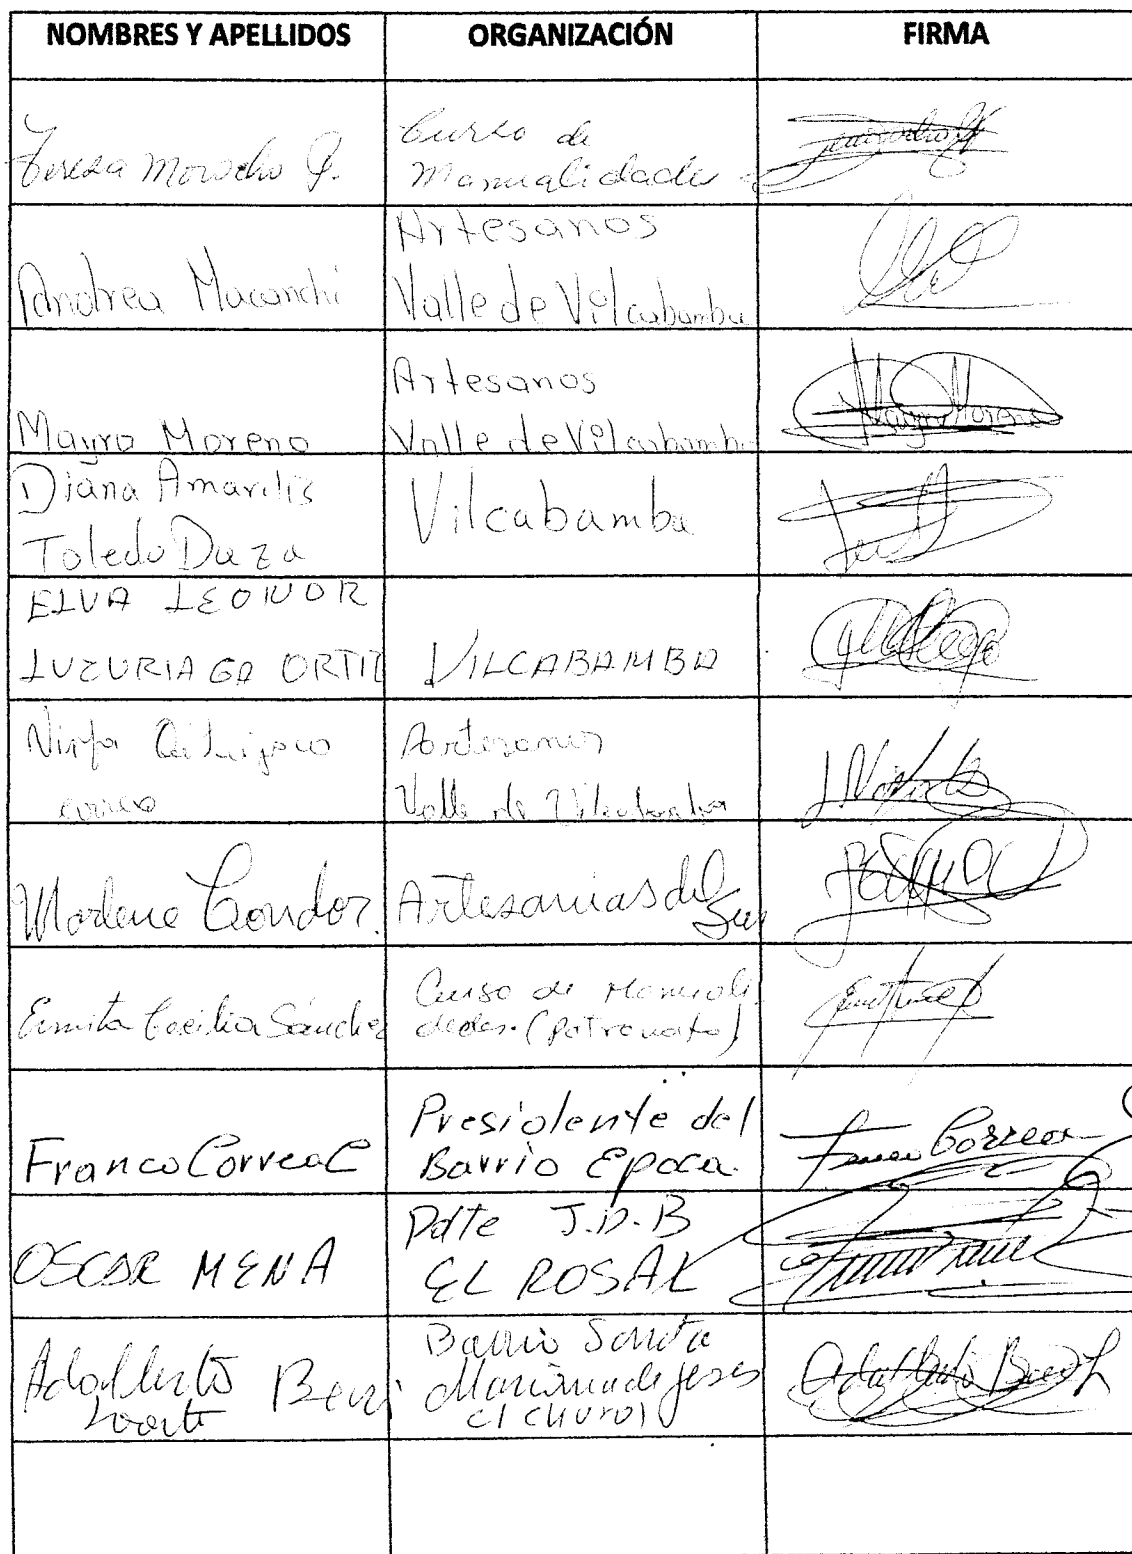 NOMBRES Y APELLIDOS ORGANIZACIÓN FIRMA
Teresa Morocho Q. Curso de
Manualidades
Andrea Macanchi Artesanos
Valle de Vilcabamba
Mayro Moreno Artesanos
Valle de Vilcabamba
Mayro Moreno
Diana Amarilis
Toledo Daza
Vilcabamba
ELVA LEONOR
LUZURIAGA ORTIZ
VILCABAMBA
Ninfa
Artesanos
Valle de Vilcabamba
Marlene Condor. Artesanias del
Sur
Esmita Cecilia Sánchez
Curso de Manuali
dades. (patronato)
Franco Correa C
Presidente del
Barrio Epoca.
Franco Correa
OSCAR MENA
Pdte J.D.B
EL ROSAL
Adalberto
Barrio Santa
Mariana de Jesus
el churo)
Adalberto